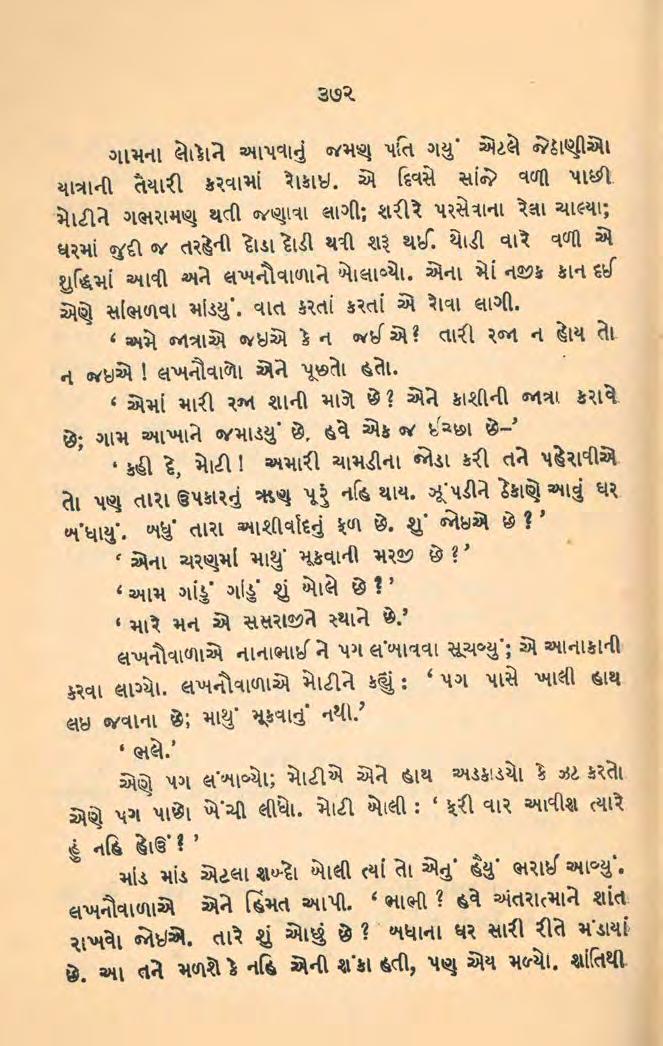 ૩૭૨
ગામના લોકોને આપવાનું જમણ પતિ ગયું એટલે જેઠાણીઓ
યાત્રાની તૈયારી કરવામાં રોકાઇ. એ દિવસે સાંજે વળી પાછી
મોટીને ગભરામણ થતી જણાવા લાગી; શરીરે પરસેવાના રેલા ચાલ્યા;
ઘરમાં જુદી જ તરહેની દોડા દોડી થવી શરૂ થઈ. થોડી વારે વળી એ
શુદ્ધિમાં આવી અને લખનૌવાળાને બોલાવ્યો. એના મોં નજીક કાન દઈ
એણે સાંભળવા માંડયું. વાત કરતાં કરતાં એ રોવા લાગી.
‘ અમે જાત્રાએ જઇએ કે ન જઈએ? તારી રજા ન હોય તો
ન જઇએ ! લખનૌવાળો એને પૂછતો હતો.
‘ એમાં મારી રજા શાની માગે છે? એને કાશીની જાત્રા કરાવે
છે; ગામ આખાને જમાડયું છે, હવે એક જ ઈચ્છા છે–’
‘ કહી દે, મોટી! અમારી ચામડીના જોડા કરી તને પહેરાવીએ
તો પણ તારા ઉપકારનું ઋણ પૂરું નહિ થાય. ઝૂંપડીને ઠેકાણે આવું ઘર
બંધાયું. બધું તારા આશીર્વાદનું ફળ છે. શું જોઇએ છે ? ’
‘ એના ચરણમાં માથું મૂકવાની મરજી છે ? ’
‘ આમ ગાંડું ગાંડું શું બોલે છે ? ’
‘ મારે મન એ સસરાજીને સ્થાને છે.’
લખનૌવાળાએ નાનાભાઈ ને પગ લંબાવવા સૂચવ્યું; એ આનાકાની
કરવા લાગ્યો. લખનૌવાળાએ મોટીને કહ્યું : ‘ પગ પાસે ખાલી હાથ
લઇ જવાના છે; માથું મૂકવાનું નથી.’
‘ ભલે.’
એણે પગ લંબાવ્યો; મોટીએ એને હાથ અડકાડયો કે ઝટ કરતો
એણે પગ પાછો ખેંચી લીધો. મોટી બોલી : ‘ ફરી વાર આવીશ ત્યારે
હું નહિ હોઉં ! ’
માંડ માંડ એટલા શબ્દો બોલી ત્યાં તો એનું હૈયું ભરાઈ આવ્યું.
લખનૌવાળાએ એને હિંમત આપી. ‘ ભાભી ? હવે અંતરાત્માને શાંત
રાખવો જોઇએ. તારે શું ઓછું છે ? બધાના ઘર સારી રીતે મંડાયાં
છે. આ તને મળશે કે નહિ એની શંકા હતી, પણ એય મળ્યો. શાંતિથી